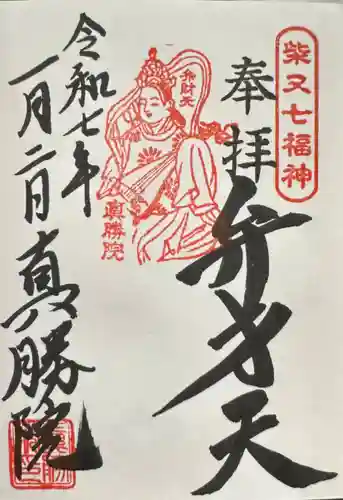 柴又七福神
奉拝
弁才天
弁財天
真勝院
令和七年
一月二日
真勝院